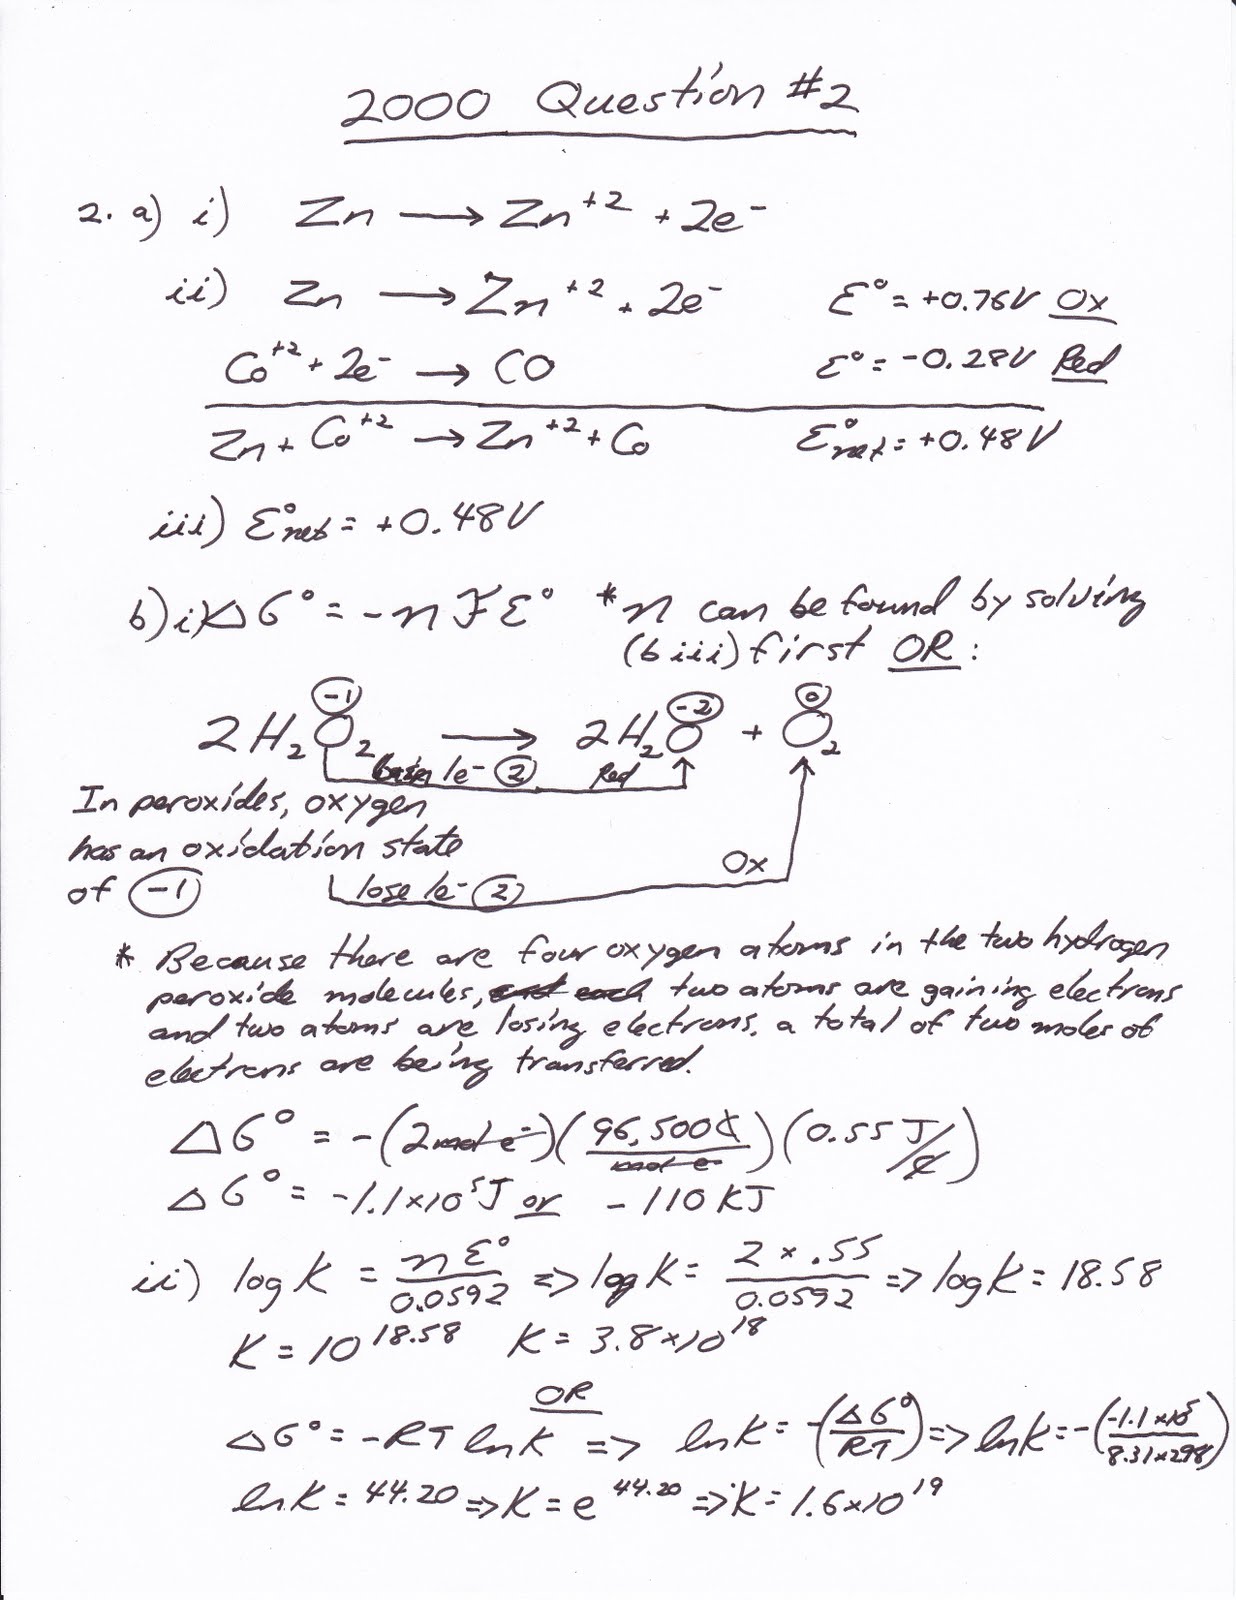 2000 Question #2
2. a) i) Zn → Zn⁺² + 2e⁻
ii) Zn → Zn⁺² + 2e⁻ ℰ° = +0.76V Ox
Co⁺² + 2e⁻ → CO ℰ° = -0.28V Red
Zn + Co⁺² → Zn⁺² + Co ℰ°net = +0.48V
iii) ℰ°net = +0.48V
b) i) ΔG° = -nℱℰ° *n can be found by solving
(b iii) first OR:
-1 -2 0
2H₂O₂ → 2H₂O + O₂
gain 1e⁻ 2 Red
In peroxides, oxygen
has an oxidation state
of -1
Ox
lose 1e⁻ 2
* Because there are four oxygen atoms in the two hydrogen
peroxide molecules, and each two atoms are gaining electrons
and two atoms are losing electrons. a total of two moles of
electrons are being transferred.
ΔG° = -(2mol e⁻)(96,500C/mol e⁻)(0.55 J/C)
ΔG° = -1.1×10⁵J or -110KJ
ii) log K = nℰ°/0.0592 => log K = 2 × .55/0.0592 => log K = 18.58
K = 10¹⁸·⁵⁸ K = 3.8×10¹⁸
OR
ΔG° = -RT ln K => ln K = -(ΔG°/RT) => ln K = -(-1.1×10⁵/8.31×298)
ln K = 44.20 => K = e⁴⁴·²⁰ => K = 1.6×10¹⁹